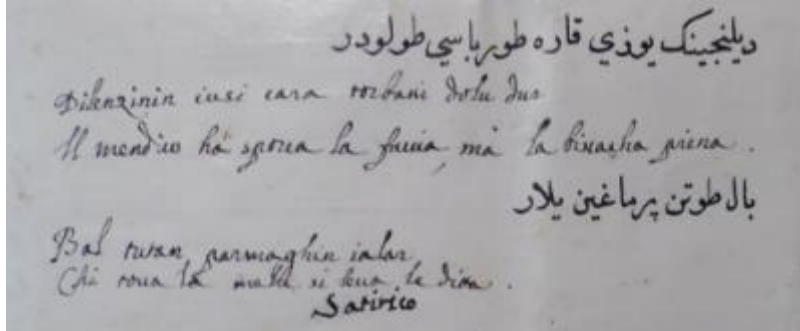 ديلنجينك يوزي قاره طورباسي طولودر
Dilenzinin iusi cara torbasi dolu dur
Il mendico há sporca la faccia, mà la bisacha piena.
بال طوتن پرماغين يلار
Bal tutan parmaghin ialar
Chi toca la mele si leca le dita.
Satirico